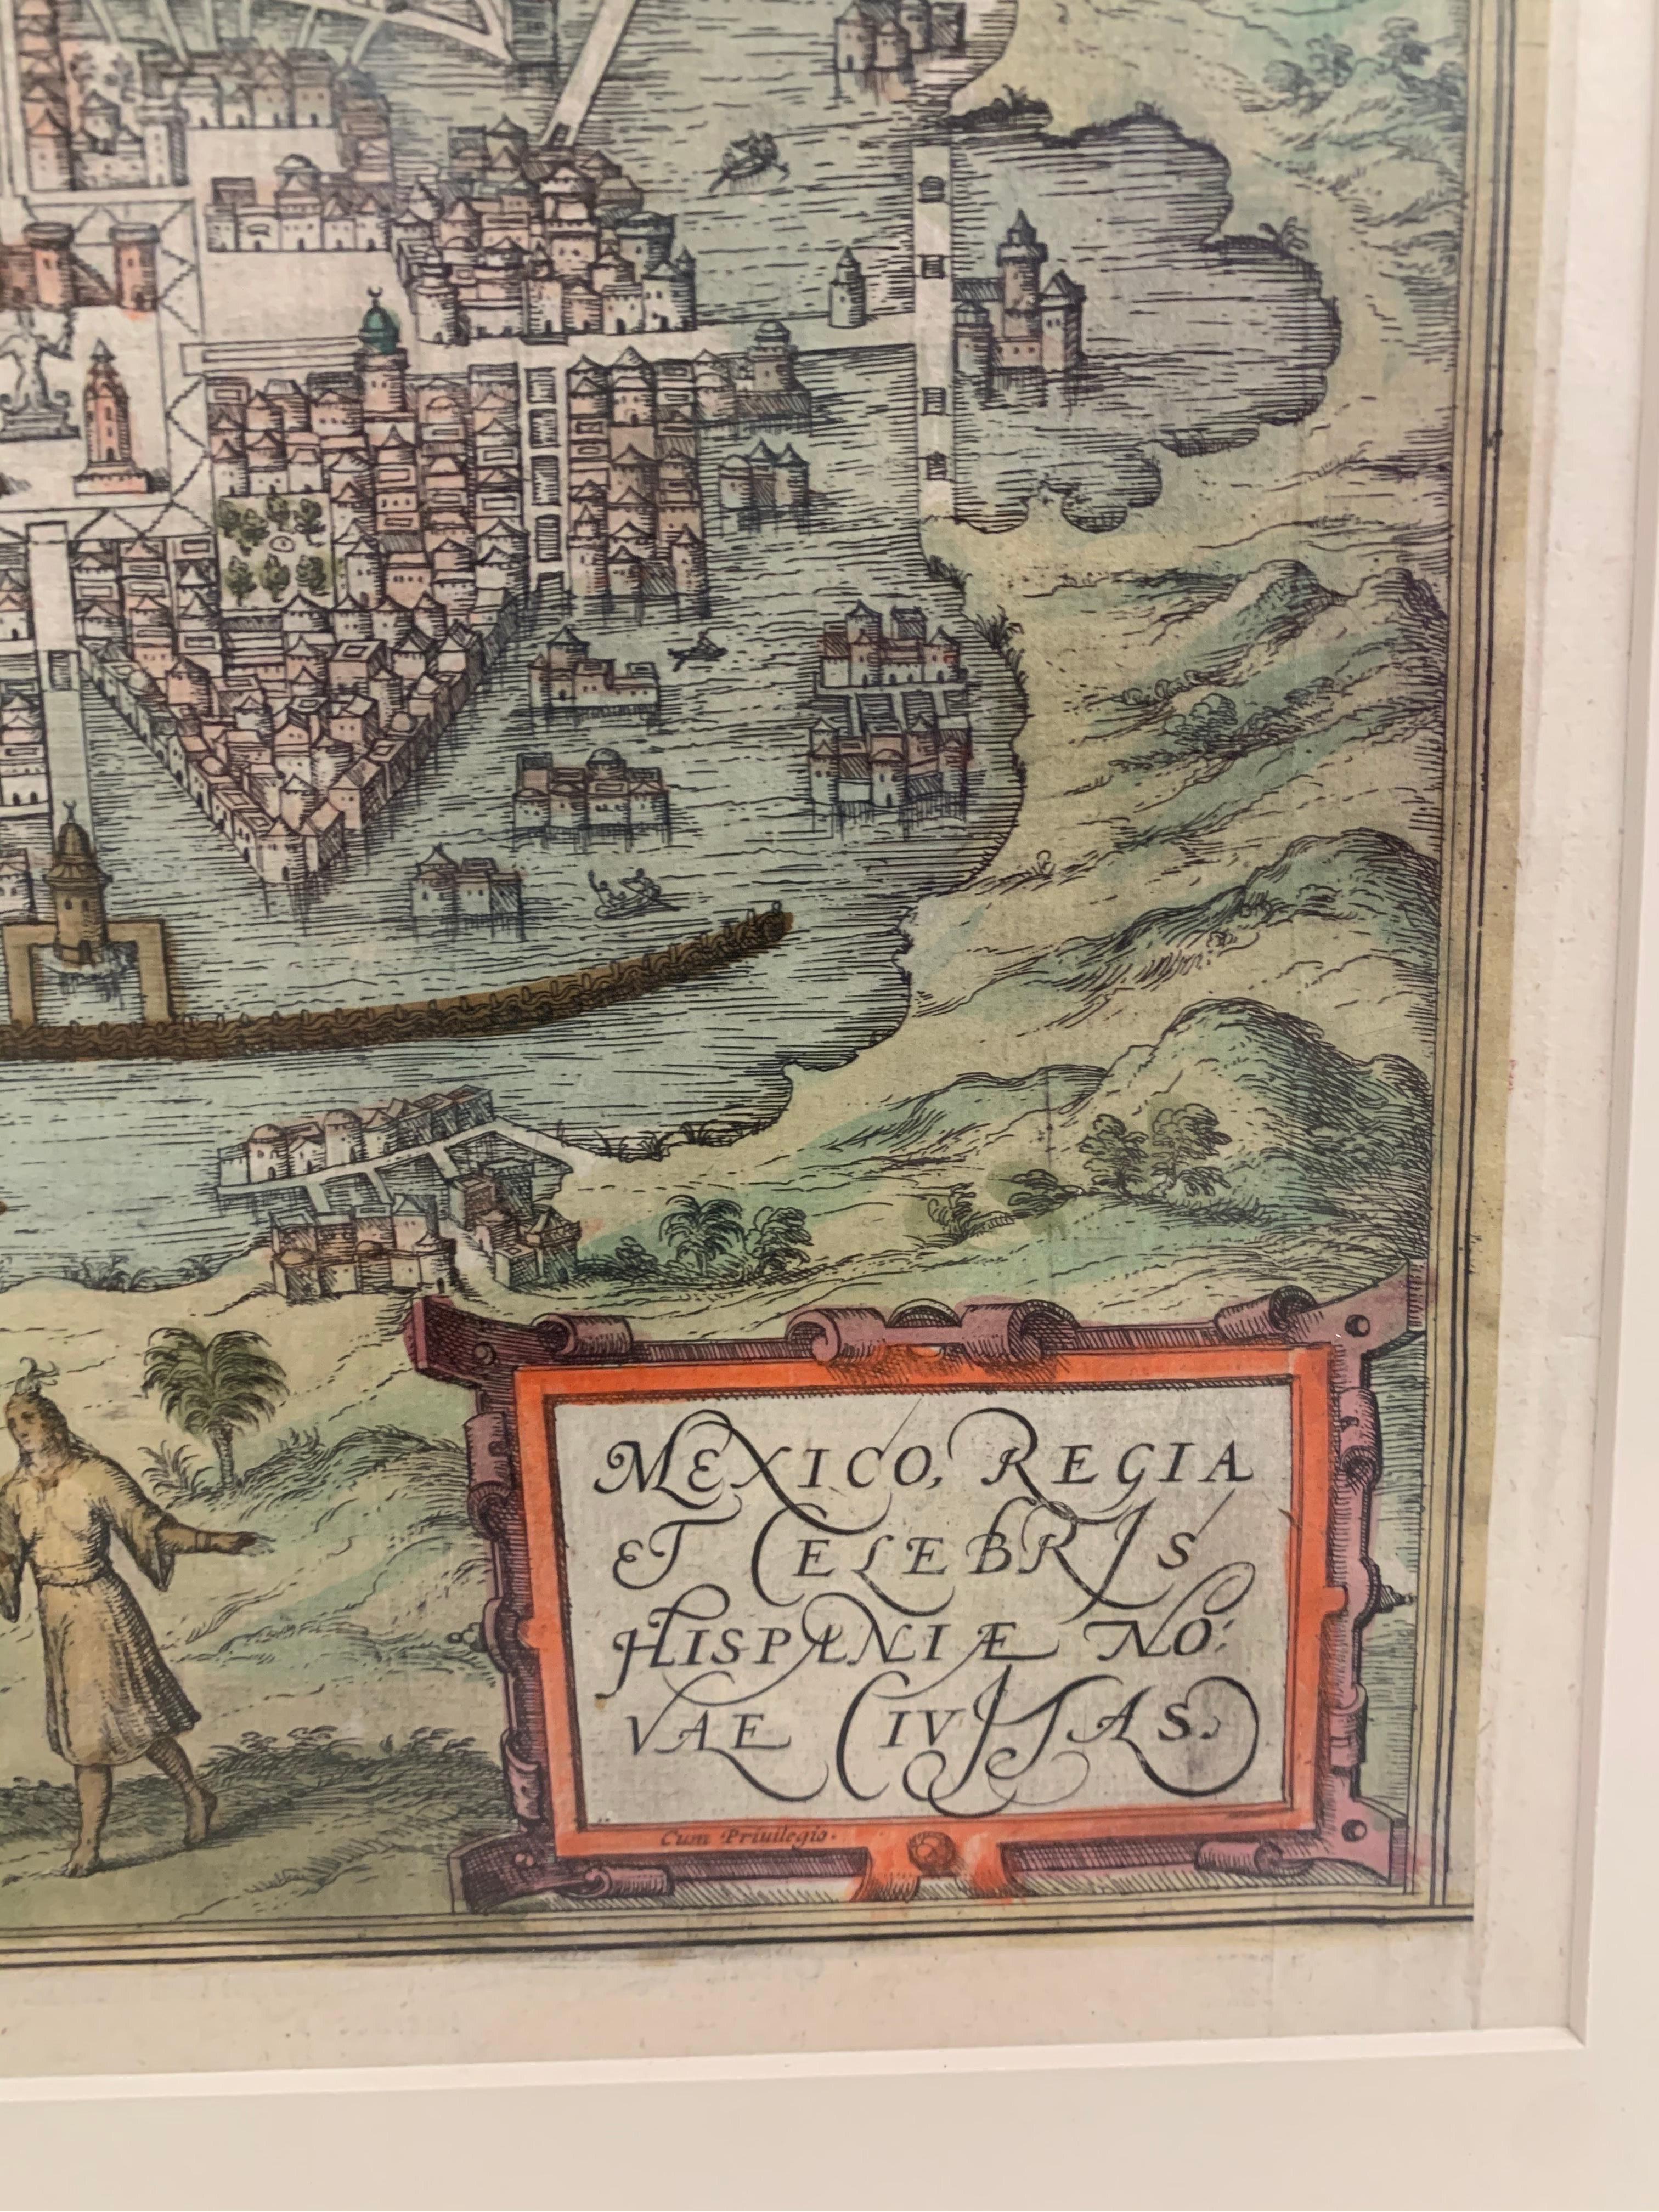 MEXICO, REGIA
ET CELEBRIS
HISPANIÆ NO:
VAE CIVITAS.
Cum Priuilegio.